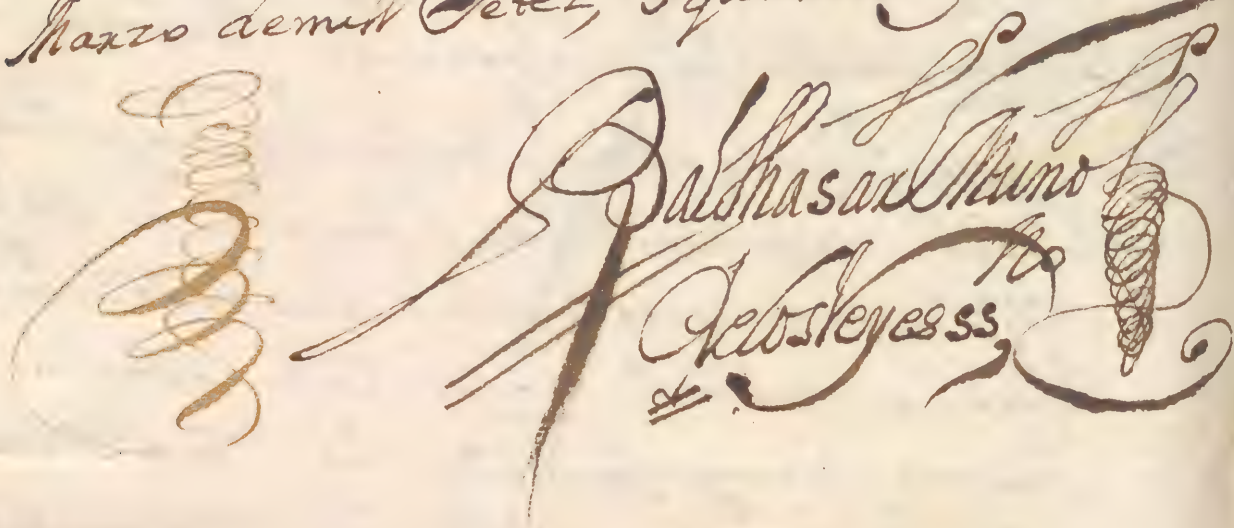 Marzo demill Setez,
Balthasar Muno
no
de los Reyes ss